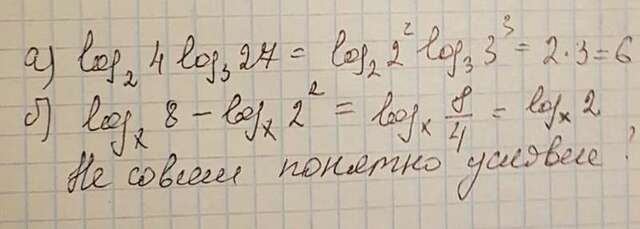 а) log₂ 4 log₃ 27 = log₂ 2² log₃ 3³ = 2·3 = 6
б) logₓ 8 − logₓ 2² = logₓ 8/4 = logₓ 2
Не совсем понятно условие!